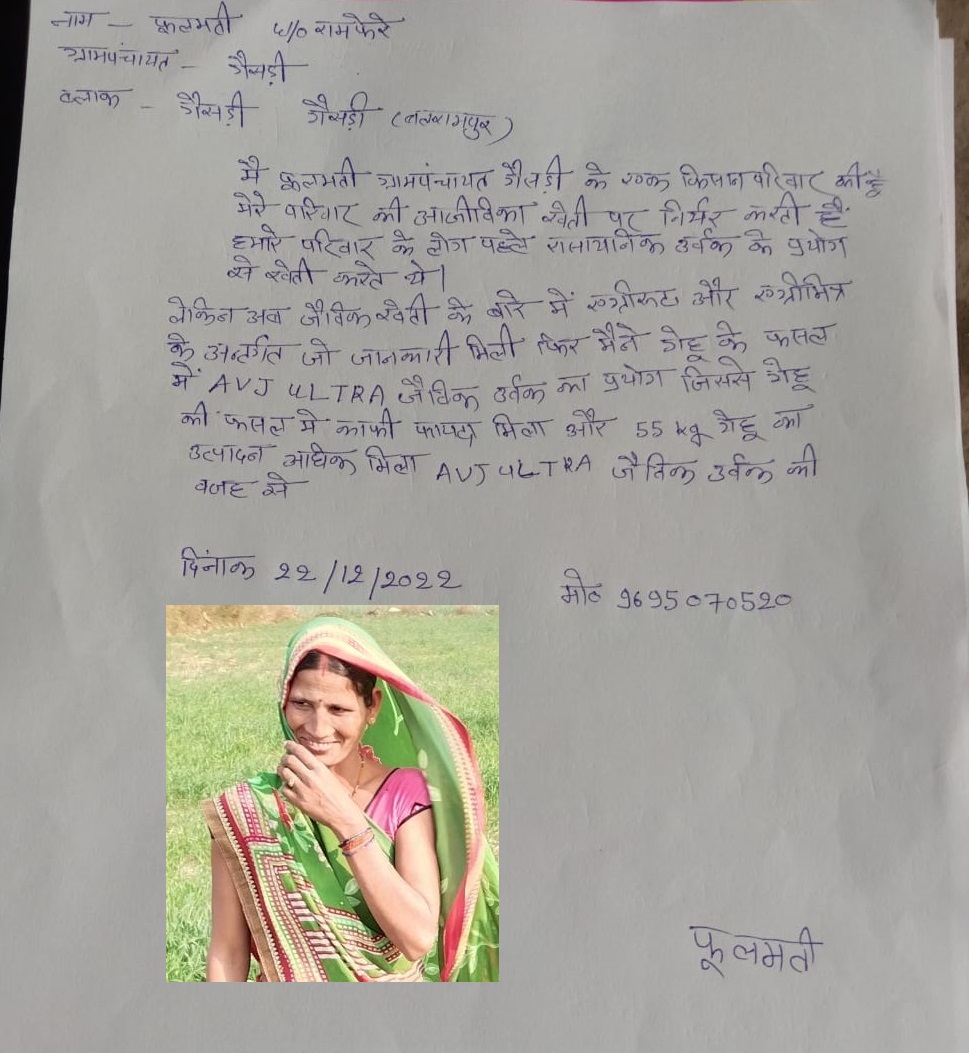 नाम - फूलमती w/o रामफेरे
ग्रामपंचायत - गैसड़ी
ब्लाक - गैसड़ी गैसड़ी (बलरामपुर)
मै फूलमती ग्रामपंचायत गैसड़ी के एक किसान परिवार की हूँ
मेरे परिवार की आजीविका खेती पर निर्भर करती है
हमारे परिवार के लोग पहले रासायनिक उर्वक के प्रयोग
से खेती करते थे।
लेकिन अब जैविक खेती के बारे में एग्रीरूट और एग्रीमित्र
के अन्तर्गत जो जानकारी मिली फिर मैने गेहू के फसल
में AVJ ULTRA जैविक उर्वक का प्रयोग जिससे गेहू
की फसल मे काफी फायदा मिला और 55 kg गेहू का
उत्पादन अधिक मिला AVJ ULTRA जैविक उर्वक की
वजह से
दिनांक 22/12/2022 मो० 9695070520
फूलमती